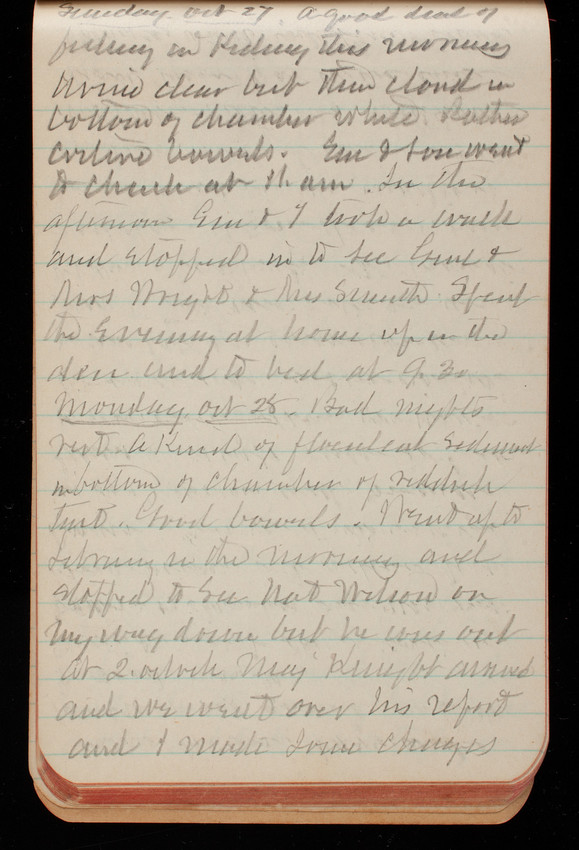 Sunday Oct 27 A good deal of
feeling in Kidney this morning
Urine clear but then cloud in
bottom of chamber white Rather
costive bowels. Em & went
to church at 11 am. In the
afternoon Em & I took a walk
and stopped in to see &
Mrs Wright & Mrs Smith Spent
the Evening at home up in the
den and to bed at 9.30
Monday Oct 28. Bad nights
rest. A Kind of flocculent Sediment
in bottom of chamber of reddish
tint. Good bowels. Went up to
Library in the morning and
stopped to see Nat Wilson on
my way down but he was out
at 2. oclock Maj Knight arrived
and we went over his report
and I made some changes